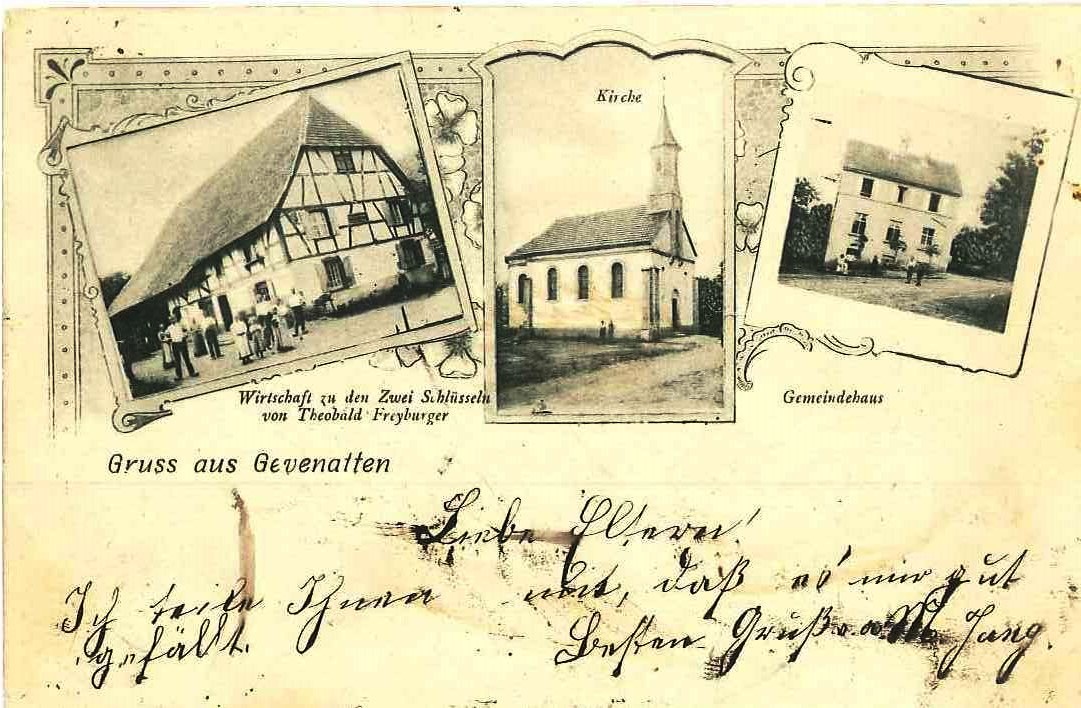 Kirche
Wirtschaft zu den Zwei Schlüsseln
von Theobald Freyburger
Gemeindehaus
Gruss aus Gevenatten
Liebe Eltern!
Ich teile Ihnen mit, daß es mir gut
gefällt. Besten Gruß